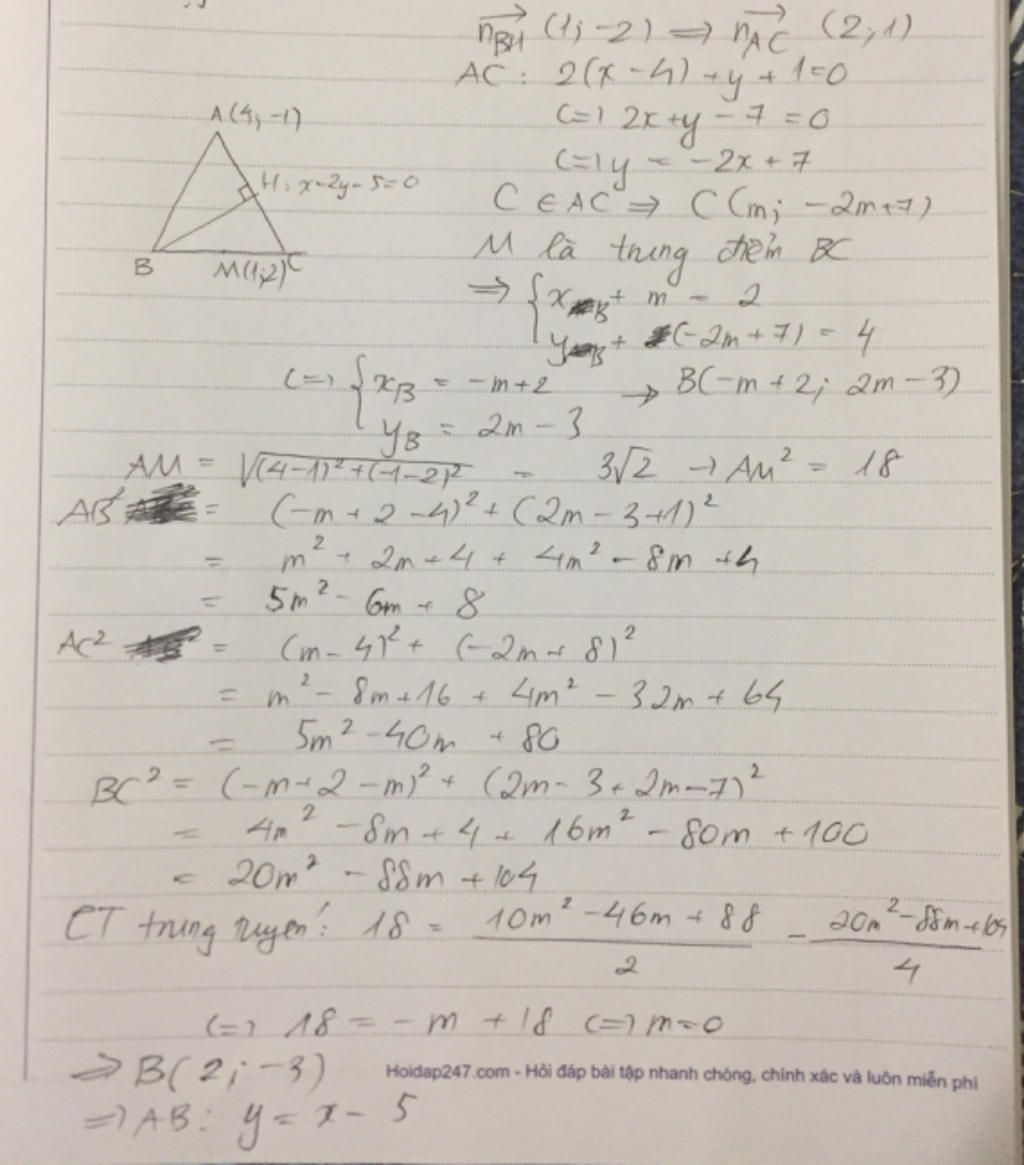 n⃗_BH (1; -2) => n⃗_AC (2; 1)
AC: 2(x-4) + y + 1 = 0
<=> 2x + y - 7 = 0
<=> y = -2x + 7
A(4; -1)
H: x-2y-5=0
B
M(1;2)
C
C ∈ AC => C(m; -2m+7)
M là trung điểm BC
=> { x_B + m = 2
y_B + (-2m+7) = 4
<=> { x_B = -m+2 → B(-m+2; 2m-3)
y_B = 2m-3
AM = √((4-1)²+(-1-2)²) = 3√2 → AM² = 18
AB² = (-m+2-4)² + (2m-3+1)²
= m² + 2m + 4 + 4m² - 8m + 4
= 5m² - 6m + 8
AC² = (m-4)² + (-2m+8)²
= m² - 8m + 16 + 4m² - 32m + 64
= 5m² - 40m + 80
BC² = (-m+2-m)² + (2m-3+2m-7)²
= 4m² - 8m + 4 + 16m² - 80m + 100
= 20m² - 88m + 104
CT trung tuyến: 18 = (10m² - 46m + 88)/2 - (20m² - 88m + 104)/4
<=> 18 = -m + 18 <=> m = 0
=> B(2; -3)
Hoidap247.com - Hỏi đáp bài tập nhanh chóng, chính xác và luôn miễn phí
=> AB: y = x - 5